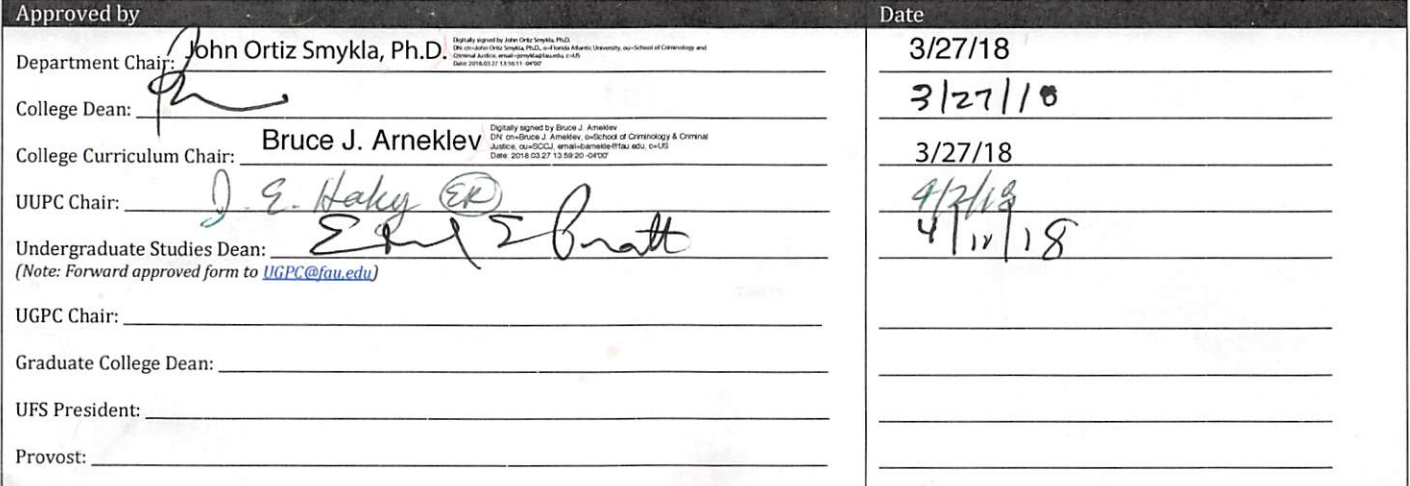 Approved by Date
Department Chair: John Ortiz Smykla, Ph.D. 3/27/18
Digitally signed by John Ortiz Smykla, Ph.D.
DN: cn=John Ortiz Smykla, Ph.D., o=Florida Atlantic University, ou=School of Criminology and
Criminal Justice, email=jsmykla@fau.edu, c=US
Date: 2018.03.27 13:16:11 -04'00'
College Dean: 3/27/18
College Curriculum Chair: Bruce J. Arneklev 3/27/18
Digitally signed by Bruce J. Arneklev
DN: cn=Bruce J. Arneklev, o=School of Criminology & Criminal
Justice, ou=SCCJ, email=barnekle@fau.edu, c=US
Date: 2018.03.27 13:59:20 -04'00'
UUPC Chair: J. E. Haky ER 4/2/18
Undergraduate Studies Dean: Pratt 4/12/18
(Note: Forward approved form to UGPC@fau.edu)
UGPC Chair:
Graduate College Dean:
UFS President:
Provost: